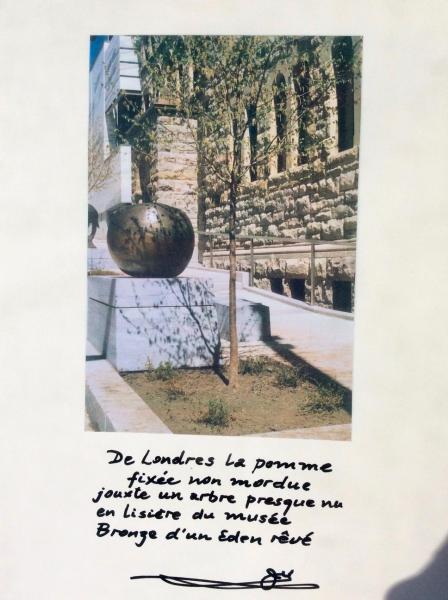 De Londres la pomme
fixée non mordue
jouxte un arbre presque nu
en lisière du musée
Bronze d'un Eden rêvé